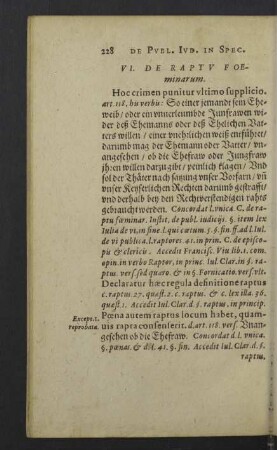 228 DE PVBL. IVD. IN SPEC.
VI. DE RAPTV FOE-
minarum.
Hoc crimen punitur vltimo supplicio.
art. 118. his verbis: So einer jemandt sein Ehe-
weib / oder ein vnuerleumbde Junfrawen wi-
der deß Ehemanns oder deß Ehelichen Vat-
ters willen / einer vnehrlichen weiß entführet /
darumb mag der Ehemann oder Vatter / vn-
angesehen / ob die Ehefraw oder Jungfraw
jhren willen darzu gibt / peinlich klagen / Vnd
sol der Thäter nach satzung vnser Vorfarn / vñ
vnser Keyserlichen Rechten darumb gestrafft /
vnd derhalb bey den Rechtverstendigen rahts
gebraucht werden. Concordat l. vnica. C. de ra-
ptu fœminar. Instit. de publ. iudicijs. §. item lex
Iulia de vi. in fine l. qui cœtum 5. §. fin. ff. ad l. Iul.
de vi publica. l. raptores 41. in prin. C. de episco-
pis & clericis. Accedit Francisc. Viu lib. 1. com.
opin. in verbo Raptor, in princ. Iul. Clar. in §. ra-
ptus. vers. sed quaro. & in §. Fornicatio. vers. vlt.
Declaratur hæc regula definitione raptus
c. raptus. 27. quæst. 2. c. raptus. & c. lex illa. 36.
quæst. 1. Accedit Iul. Clar. d. §. raptus, in princip.
Except. 1.
reprobata.
Pœna autem raptus locum habet, quam-
uis rapta consenserit. d. art. 118. vers. Vnan-
gesehen ob die Ehefraw. Concordat d. l. vnica.
§. pœnas. & dist. 41. §. fin. Accedit Iul. Clar. d. §.
raptus,